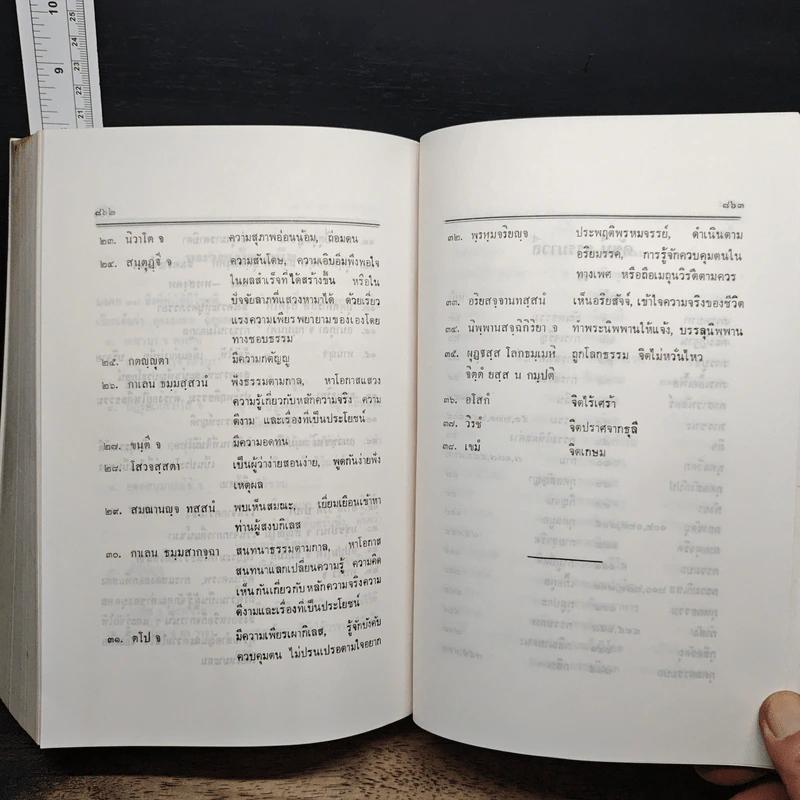 ๘๖๒
๒๓. นิวาโต จ ความสุภาพอ่อนน้อม, ถ่อมตน
๒๔. สนฺตุฏฺฐี จ ความสันโดษ, ความเอิบอิ่มพึงพอใจ
ในผลสำเร็จที่ได้สร้างขึ้น หรือใน
ปัจจัยลาภที่แสวงหามาได้ ด้วยเรี่ยว
แรงความเพียรพยายามของเองโดย
ทางชอบธรรม
๒๕. กตญฺญุตา มีความกตัญญู
๒๖. กาเลน ธมฺมสฺสวนํ ฟังธรรมตามกาล, หาโอกาสแสวง
ความรู้เกี่ยวกับหลักความจริง ความ
ดีงาม และเรื่องที่เป็นประโยชน์
๒๗. ขนฺตี จ มีความอดทน
๒๘. โสวจสฺสตา เป็นผู้ว่าง่ายสอนง่าย, พูดกันง่ายฟัง
เหตุผล
๒๙. สมณานญฺจ ทสฺสนํ พบเห็นสมณะ, เยี่ยมเยือนเข้าหา
ท่านผู้สงบกิเลส
๓๐. กาเลน ธมฺมสากจฺฉา สนทนาธรรมตามกาล, หาโอกาส
สนทนาแลกเปลี่ยนความรู้ ความคิด
เห็นกันเกี่ยวกับหลักความจริงความ
ดีงามและเรื่องที่เป็นประโยชน์
๓๑. ตโป จ มีความเพียรเผากิเลส, รู้จักบังคับ
ควบคุมตน ไม่ปรนเปรอตามใจอยาก
๘๖๓
๓๒. พฺรหฺมจริยญฺจ ประพฤติพรหมจรรย์, ดำเนินตาม
อริยมรรค, การรู้จักควบคุมตนใน
ทางเพศ หรือถือเมถุนวิรัติตามควร
๓๓. อริยสจฺจานทสฺสนํ เห็นอริยสัจจ์, เข้าใจความจริงของชีวิต
๓๔. นิพฺพานสจฺฉิกิริยา จ ทำพระนิพพานให้แจ้ง, บรรลุนิพพาน
๓๕. ผุฏฺฐสฺส โลกธมฺเมหิ ถูกโลกธรรม จิตไม่หวั่นไหว
จิตฺตํ ยสฺส น กมฺปติ
๓๖. อโสกํ จิตไร้เศร้า
๓๗. วิรชํ จิตปราศจากธุลี
๓๘. เขมํ จิตเกษม
9
10
21
22
23
24
25